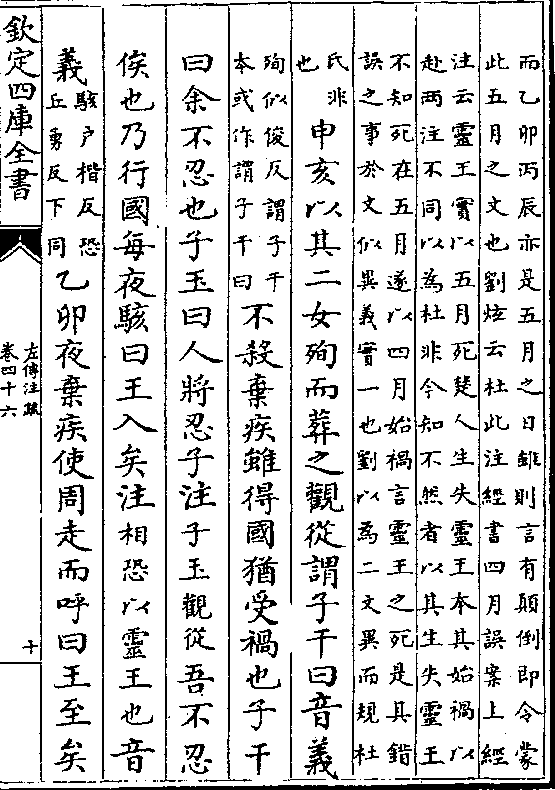 而乙卯丙辰亦是五月之日雖則言有顛倒即令蒙
此五月之文也劉炫云杜此注經書四月誤案上經
注云靈王實以五月死楚人生失靈王本其始禍以
赴兩注不同以為杜非今知不然者以其生失靈王
不知死在五月遂以四月始禍言靈王之死是其錯
誤之事於文似異義實一也劉以為二文異而規杜
氏非
也
申亥以其二女殉而葬之觀從謂子干曰音義
殉似俊反謂子干
本或作謂子干曰
不殺棄疾雖得國猶受禍也子干
曰余不忍也子玉曰人將忍子注子玉觀從吾不忍
俟也乃行國每夜駭曰王入矣注相恐以靈王也音
義
駭户楷反恐
丘勇反下同
乙卯夜棄疾使周走而呼曰王至矣
欽定四庫全書
左傳注疏
卷四十六
十